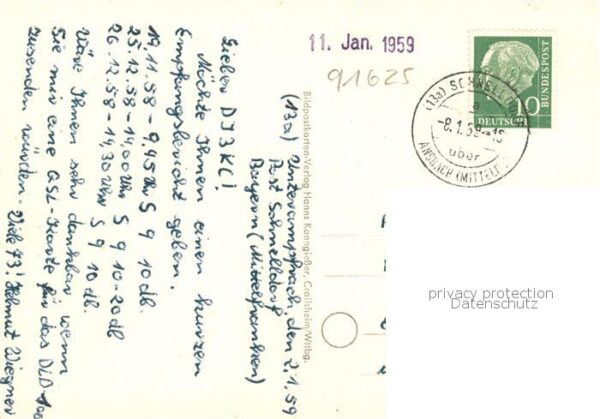 (13a) Unterampfrach, den 2.1.59
Post Schnelldorf
Bayern (Mittelfranken)
Lieber DJ3KC!
Möchte Ihnen einen kurzen
Empfangsbericht geben.
19.11.58 - 9,45 Uhr S 9 10 db.
25.12.58 - 14,00 Uhr S 9 10-20 db
26.12.58 - 14,30 Uhr S 9 10 db.
Wäre Ihnen sehr dankbar wenn
Sie mir eine QSL-Karte für das DLD-100
zusenden würden. Viele 73! Helmut Wiegner
Bildpostkarten-Verlag Hanns Kanngießer, Crailsheim/Wttbg.
11. Jan. 1959
91625
(13a) SCHNELLDORF
a
-8.1.59-18
über
ANSBACH (MITTELF.
10
DEUTSCHE
BUNDESPOST
privacy protection
Datenschutz